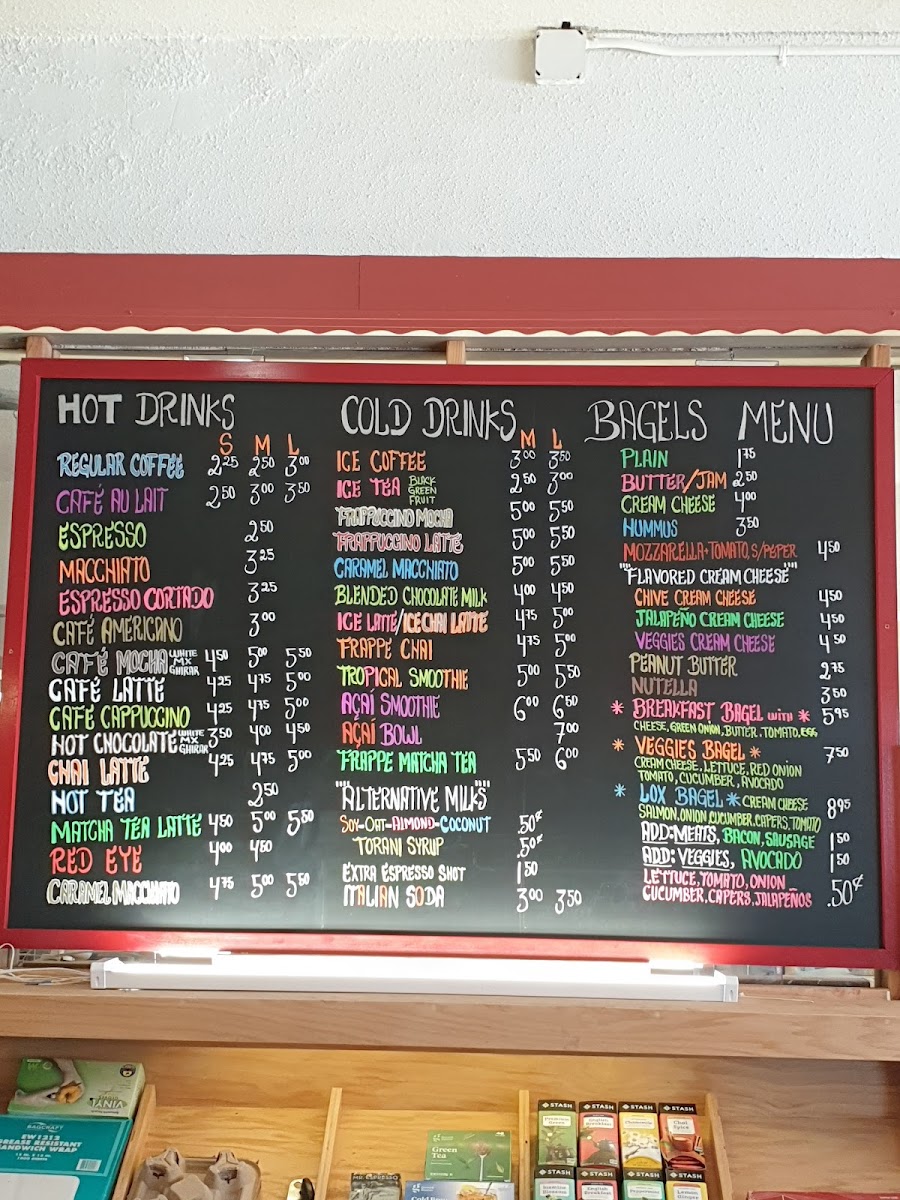 HOT DRINKS
S M L
REGULAR COFFEE 2.25 2.50 3.00
CAFÉ AU LAIT 2.50 3.00 3.50
ESPRESSO 2.50
MACCHIATO 3.25
ESPRESSO CORTADO 3.25
CAFÉ AMERICANO 3.00
CAFÉ MOCHA WHITE MX GHIRAR 4.50 5.00 5.50
CAFÉ LATTE 4.25 4.75 5.00
CAFÉ CAPPUCCINO 4.25 4.75 5.00
HOT CHOCOLATE WHITE MX GHIRAR 3.50 4.00 4.50
CHAI LATTE 4.25 4.75 5.00
HOT TEA 2.50
MATCHA TEA LATTE 4.50 5.00 5.50
RED EYE 4.00 4.50
CARAMEL MACCHIATO 4.75 5.00 5.50
COLD DRINKS
M L
ICE COFFEE 3.00 3.50
ICE TEA BLACK GREEN FRUIT 2.50 3.00
FRAPPUCCINO MOCHA 5.00 5.50
FRAPPUCCINO LATTE 5.00 5.50
CARAMEL MACCHIATO 5.00 5.50
BLENDED CHOCOLATE MILK 4.00 4.50
ICE LATTE/ICE CHAI LATTE 4.75 5.00
FRAPPE CHAI 4.75 5.00
TROPICAL SMOOTHIE 5.00 5.50
AÇAÍ SMOOTHIE 6.00 6.50
AÇAÍ BOWL 7.00
FRAPPE MATCHA TEA 5.50 6.00
""ALTERNATIVE MILKS""
SOY-OAT-ALMOND-COCONUT .50¢
TORANI SYRUP .50¢
EXTRA ESPRESSO SHOT 1.50
ITALIAN SODA 3.00 3.50
BAGELS MENU
PLAIN 1.75
BUTTER/JAM 2.50
CREAM CHEESE 4.00
HUMMUS 3.50
MOZZARELLA+TOMATO, S/PEPER 4.50
""FLAVORED CREAM CHEESE""
CHIVE CREAM CHEESE 4.50
JALAPEÑO CREAM CHEESE 4.50
VEGGIES CREAM CHEESE 4.50
PEANUT BUTTER 2.75
NUTELLA 3.50
* BREAKFAST BAGEL WITH * 5.95
CHEESE, GREEN ONION, BUTTER. TOMATO, EGG
* VEGGIES BAGEL * 7.50
CREAM CHEESE, LETTUCE, RED ONION
TOMATO, CUCUMBER, AVOCADO
* LOX BAGEL * CREAM CHEESE 8.95
SALMON, ONION, CUCUMBER, CAPERS, TOMATO
ADD: MEATS, BACON, SAUSAGE 1.50
ADD: VEGGIES, AVOCADO 1.50
LETTUCE, TOMATO, ONION
CUCUMBER, CAPERS, JALAPEÑOS .50¢
VINYL
BAGCRAFT
EW1212
GREASE RESISTANT
SANDWICH WRAP
Green
Tea
STASH STASH STASH STASH
Chai
Spice
MR. ESPRESSO
STASH STASH STASH STASH